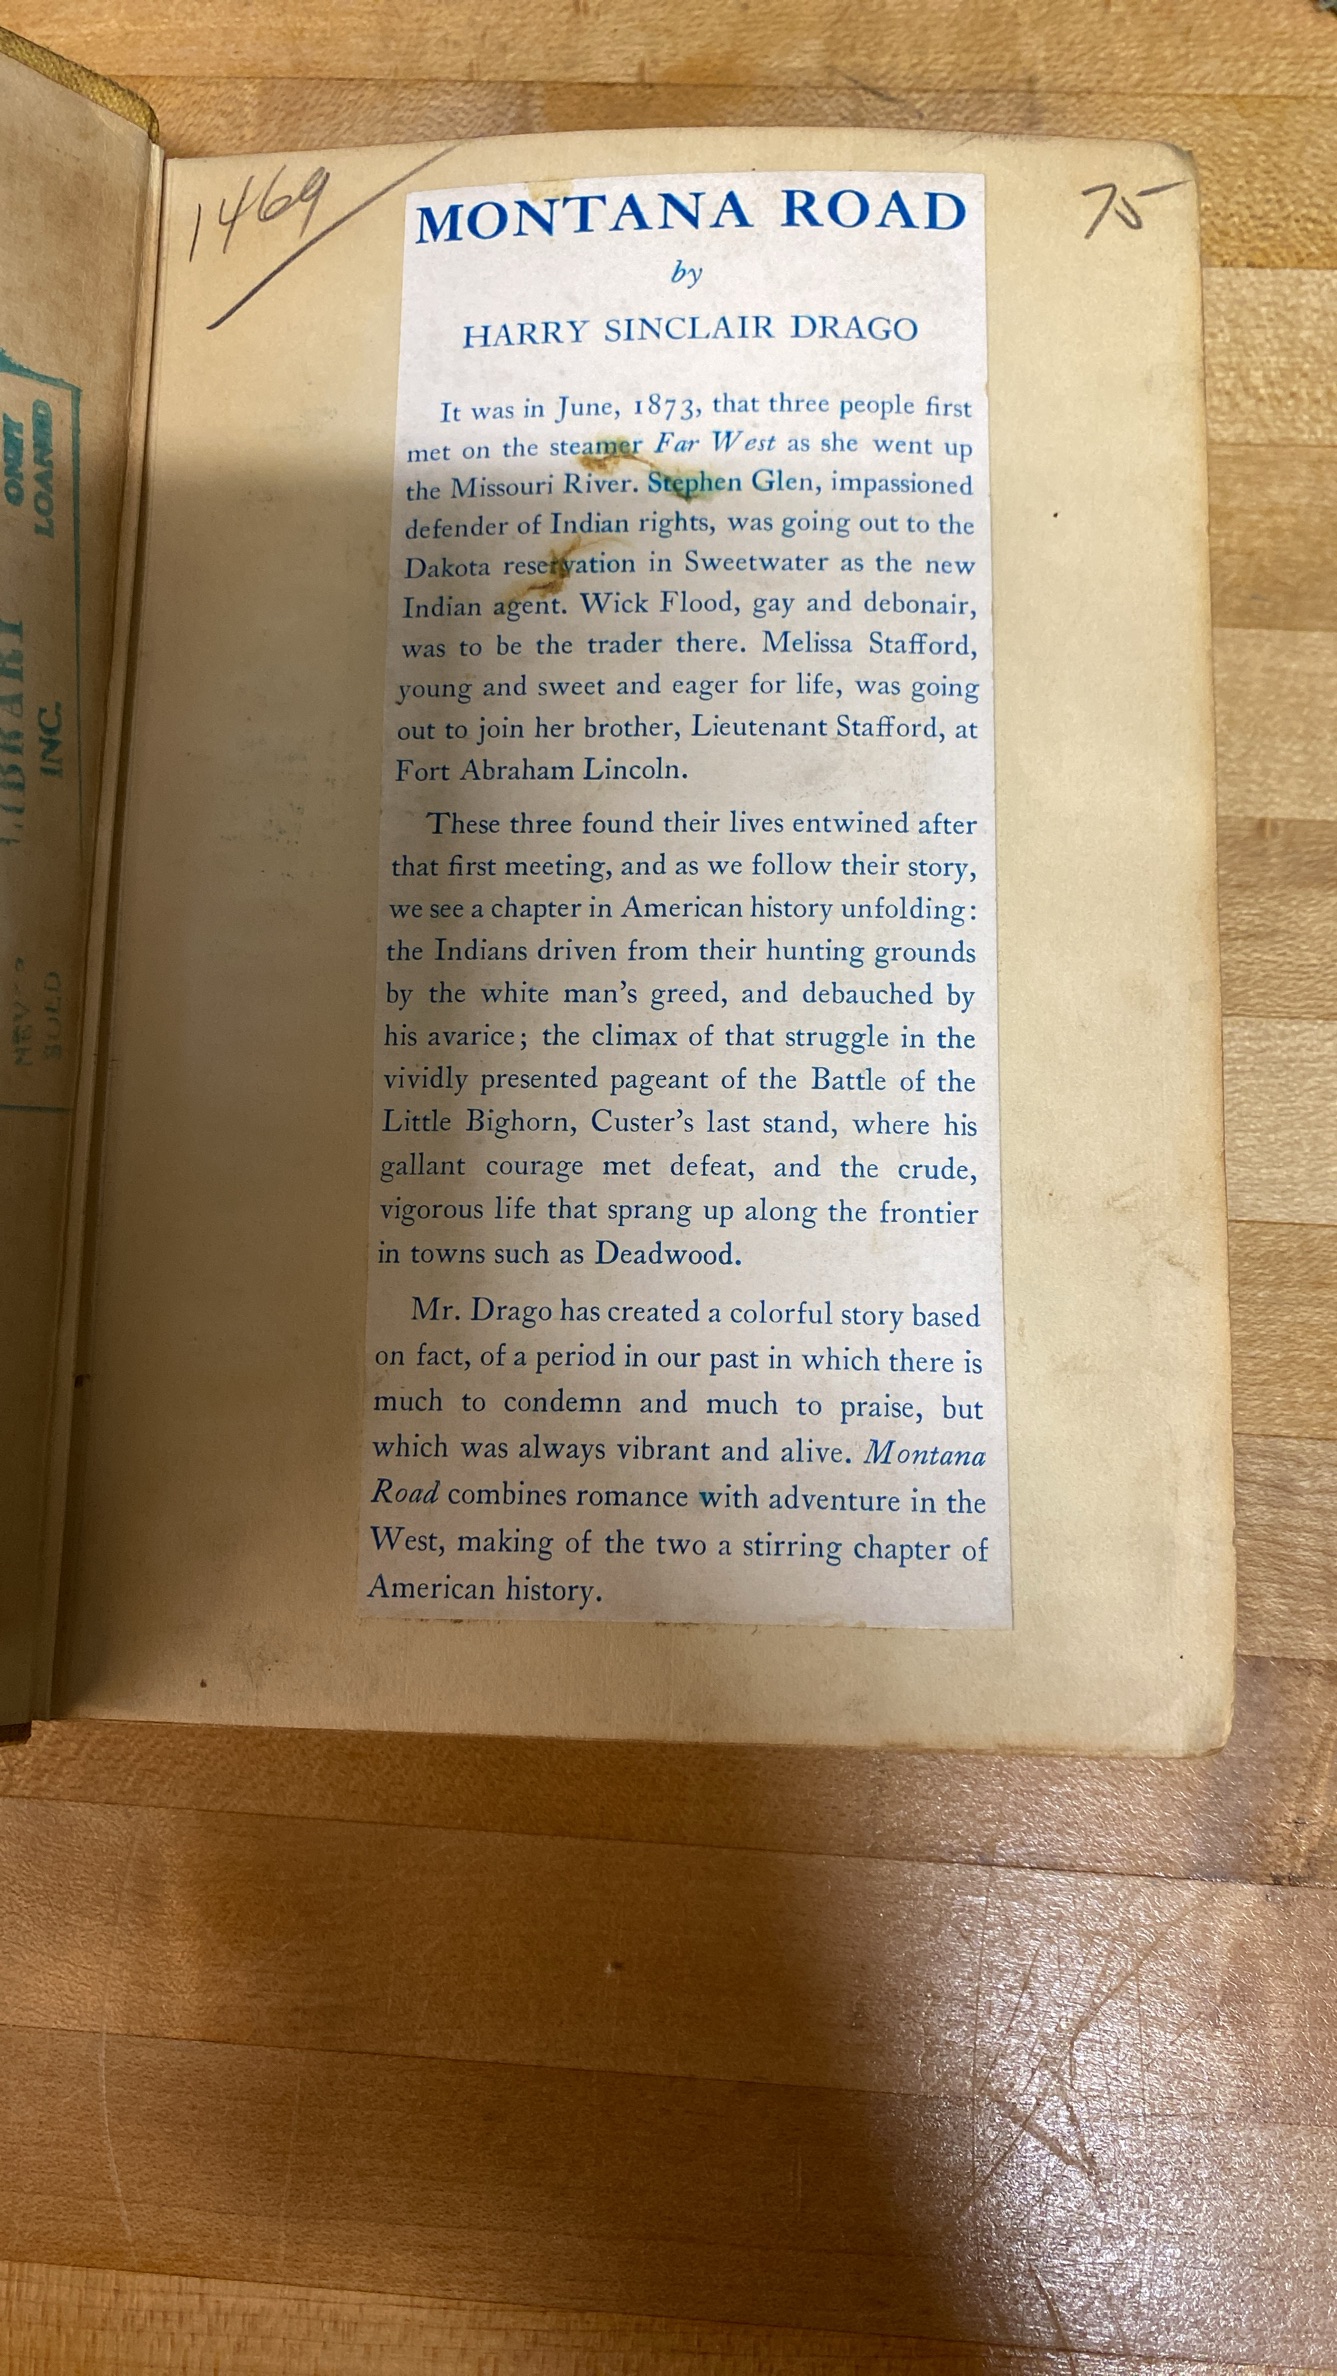 1469
75
MONTANA ROAD
by
HARRY SINCLAIR DRAGO
It was in June, 1873, that three people first
met on the steamer Far West as she went up
the Missouri River. Stephen Glen, impassioned
defender of Indian rights, was going out to the
Dakota reservation in Sweetwater as the new
Indian agent. Wick Flood, gay and debonair,
was to be the trader there. Melissa Stafford,
young and sweet and eager for life, was going
out to join her brother, Lieutenant Stafford, at
Fort Abraham Lincoln.
These three found their lives entwined after
that first meeting, and as we follow their story,
we see a chapter in American history unfolding:
the Indians driven from their hunting grounds
by the white man's greed, and debauched by
his avarice; the climax of that struggle in the
vividly presented pageant of the Battle of the
Little Bighorn, Custer's last stand, where his
gallant courage met defeat, and the crude,
vigorous life that sprang up along the frontier
in towns such as Deadwood.
Mr. Drago has created a colorful story based
on fact, of a period in our past in which there is
much to condemn and much to praise, but
which was always vibrant and alive. Montana
Road combines romance with adventure in the
West, making of the two a stirring chapter of
American history.
LIBRARY
INC.
LOANED
SOLD